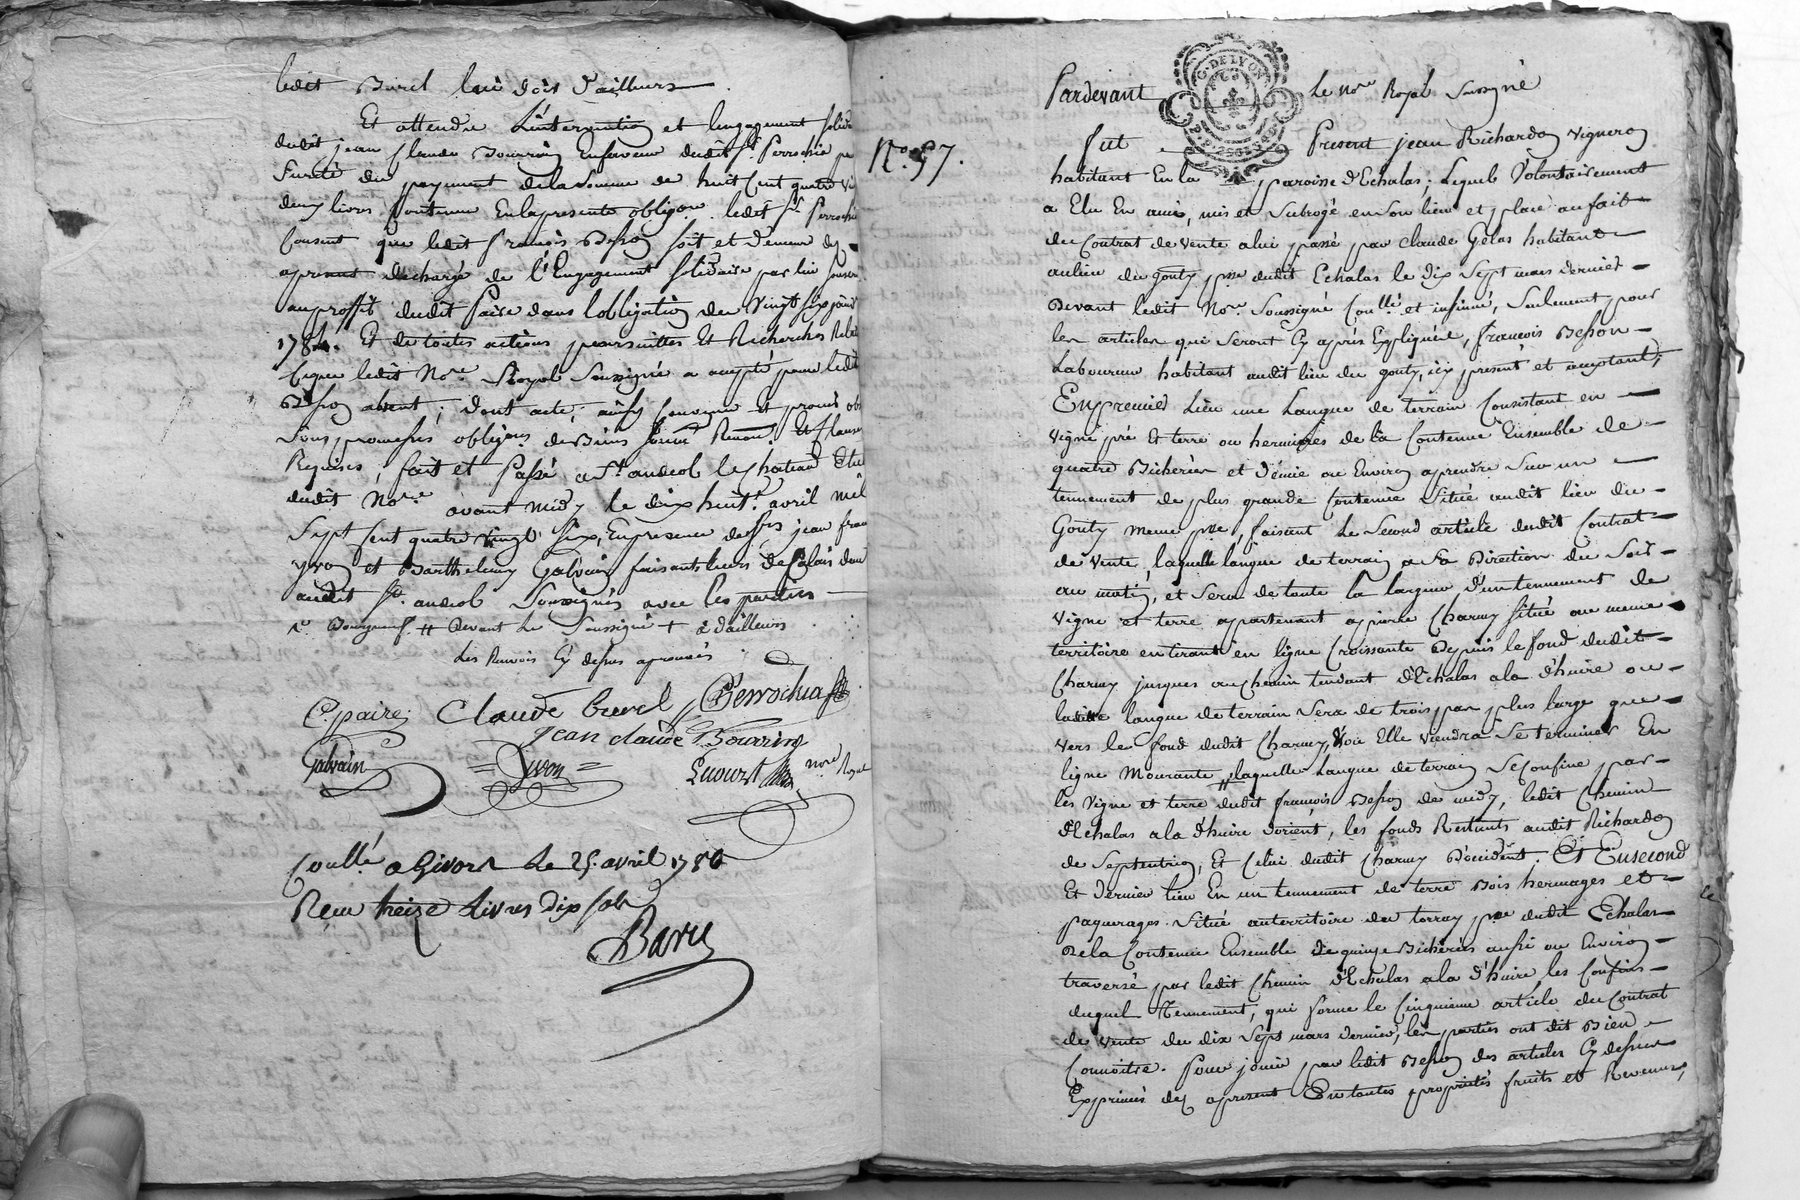 ledit Buril lui doit d'ailleurs
Et attendu L'intervention et l'engagement solid
dudit jean Claude Bourrin En faveur dudit Sr. Perrochia
Sureté du payement de la somme de huit cent quatre vi
deux livres Contenue En la presente obligaon. ledit Sr Perrochia
Consent que ledit françois Besson soit et demeure dez
apresent dechargé de l'Engagement solidaire par lui
au proffit dudit Paire dans l'obligation du Vingt six
1784. Et de toutes actions poursuittes Et Recherches
ledit Nore Royal Soussigné a accepté pour ledit
Besson absent; dont acte; ainsy Convenu et promis
Sous promesses obligaons de Biens Renon. Et Clauses
Requises, fait et Passé a St. andeol le chateau Etude
dudit Nore avant midy le dix huit avril mil
Sept Cent quatre vingt Six, En presence de jean
yvon et Barthelemy Galvain
audit St. andeol Soussignés avec les parties
# Devant Le Soussigné + d'ailleurs
Les Renvois Cy dessus aprouvés
C. paire Claude burel Perrochia
jean claude Bourrin
Galvain = Yvon = nore Royal
Coullé a Givors Le 25. avril 1786
Reçu treize Livres dix sols
Barry
Pardevant Le nore Royal Soussigné
G. DE LYON
No. 97.
fut Present jean Richardon Vigneron
habitant En la paroisse d'Echalas; Lequel Volontairement
a Elu En ami, mis et Subrogé en Son lieu et place au fait
du Contrat de Vente a lui passé par Claude Gelas habitant
au lieu du gouty psse dudit Echalas le dix Sept mars dernier
Devant ledit Nore. Soussigné Coullé et insinué, Seulement pour
les articles qui Seront Cy après Expliqués, françois Besson
Laboureur habitant audit lieu du gouty, icy present et acceptant;
En premier Lieu une Langue de terrain Consistant en
Vigne pré Et terre ou hermages de la Contenue Ensemble de
quatre Bicherées et demie ou Environ a prendre Sur un
tennement de plus grande Contenue Situé audit lieu du
Gouty meme psse, faisant Le Second article dudit Contrat
de Vente, laquelle langue de terrain a Sa Direction du Soir
au matin, et Sera de toute la largeur d'un tennement de
Vigne et terre appartenant a pierre Charmy Situé au meme
territoire en tirant en ligne Croissante Depuis le fond dudit
Charmy jusques au Chemin tendant d'Echalas a la d'huire ou
laditte langue de terrain Sera de trois pas plus large que
Vers le fond dudit Charmy, Elle viendra Se terminer En
ligne Mourante, laquelle Langue de terrain Se Confine par
les Vigne et terre dudit françois Besson de midy, ledit Chemin
d'Echalas a la d'huire d'orient, les fonds Restants audit Richardon
de Septentrion, Et Celui dudit Charmy d'occident. Et En second
Et dernier lieu En un tennement de terre Bois hermages et
paquerages Situé au territoire du torray psse dudit Echalas
De la Contenue Ensemble de quinze Bicherées aussi ou Environ
traversé par ledit Chemin d'Echalas a la d'huire les Confins
duquel Tennement, qui forme le Cinquieme article du Contrat
de Vente du dix Sept mars dernier, les parties ont dit Bien
Connoitre. Pour jouir par ledit Besson des articles Cy dessus
Exprimés dez apresent En toutes proprietés fruits et Revenus,